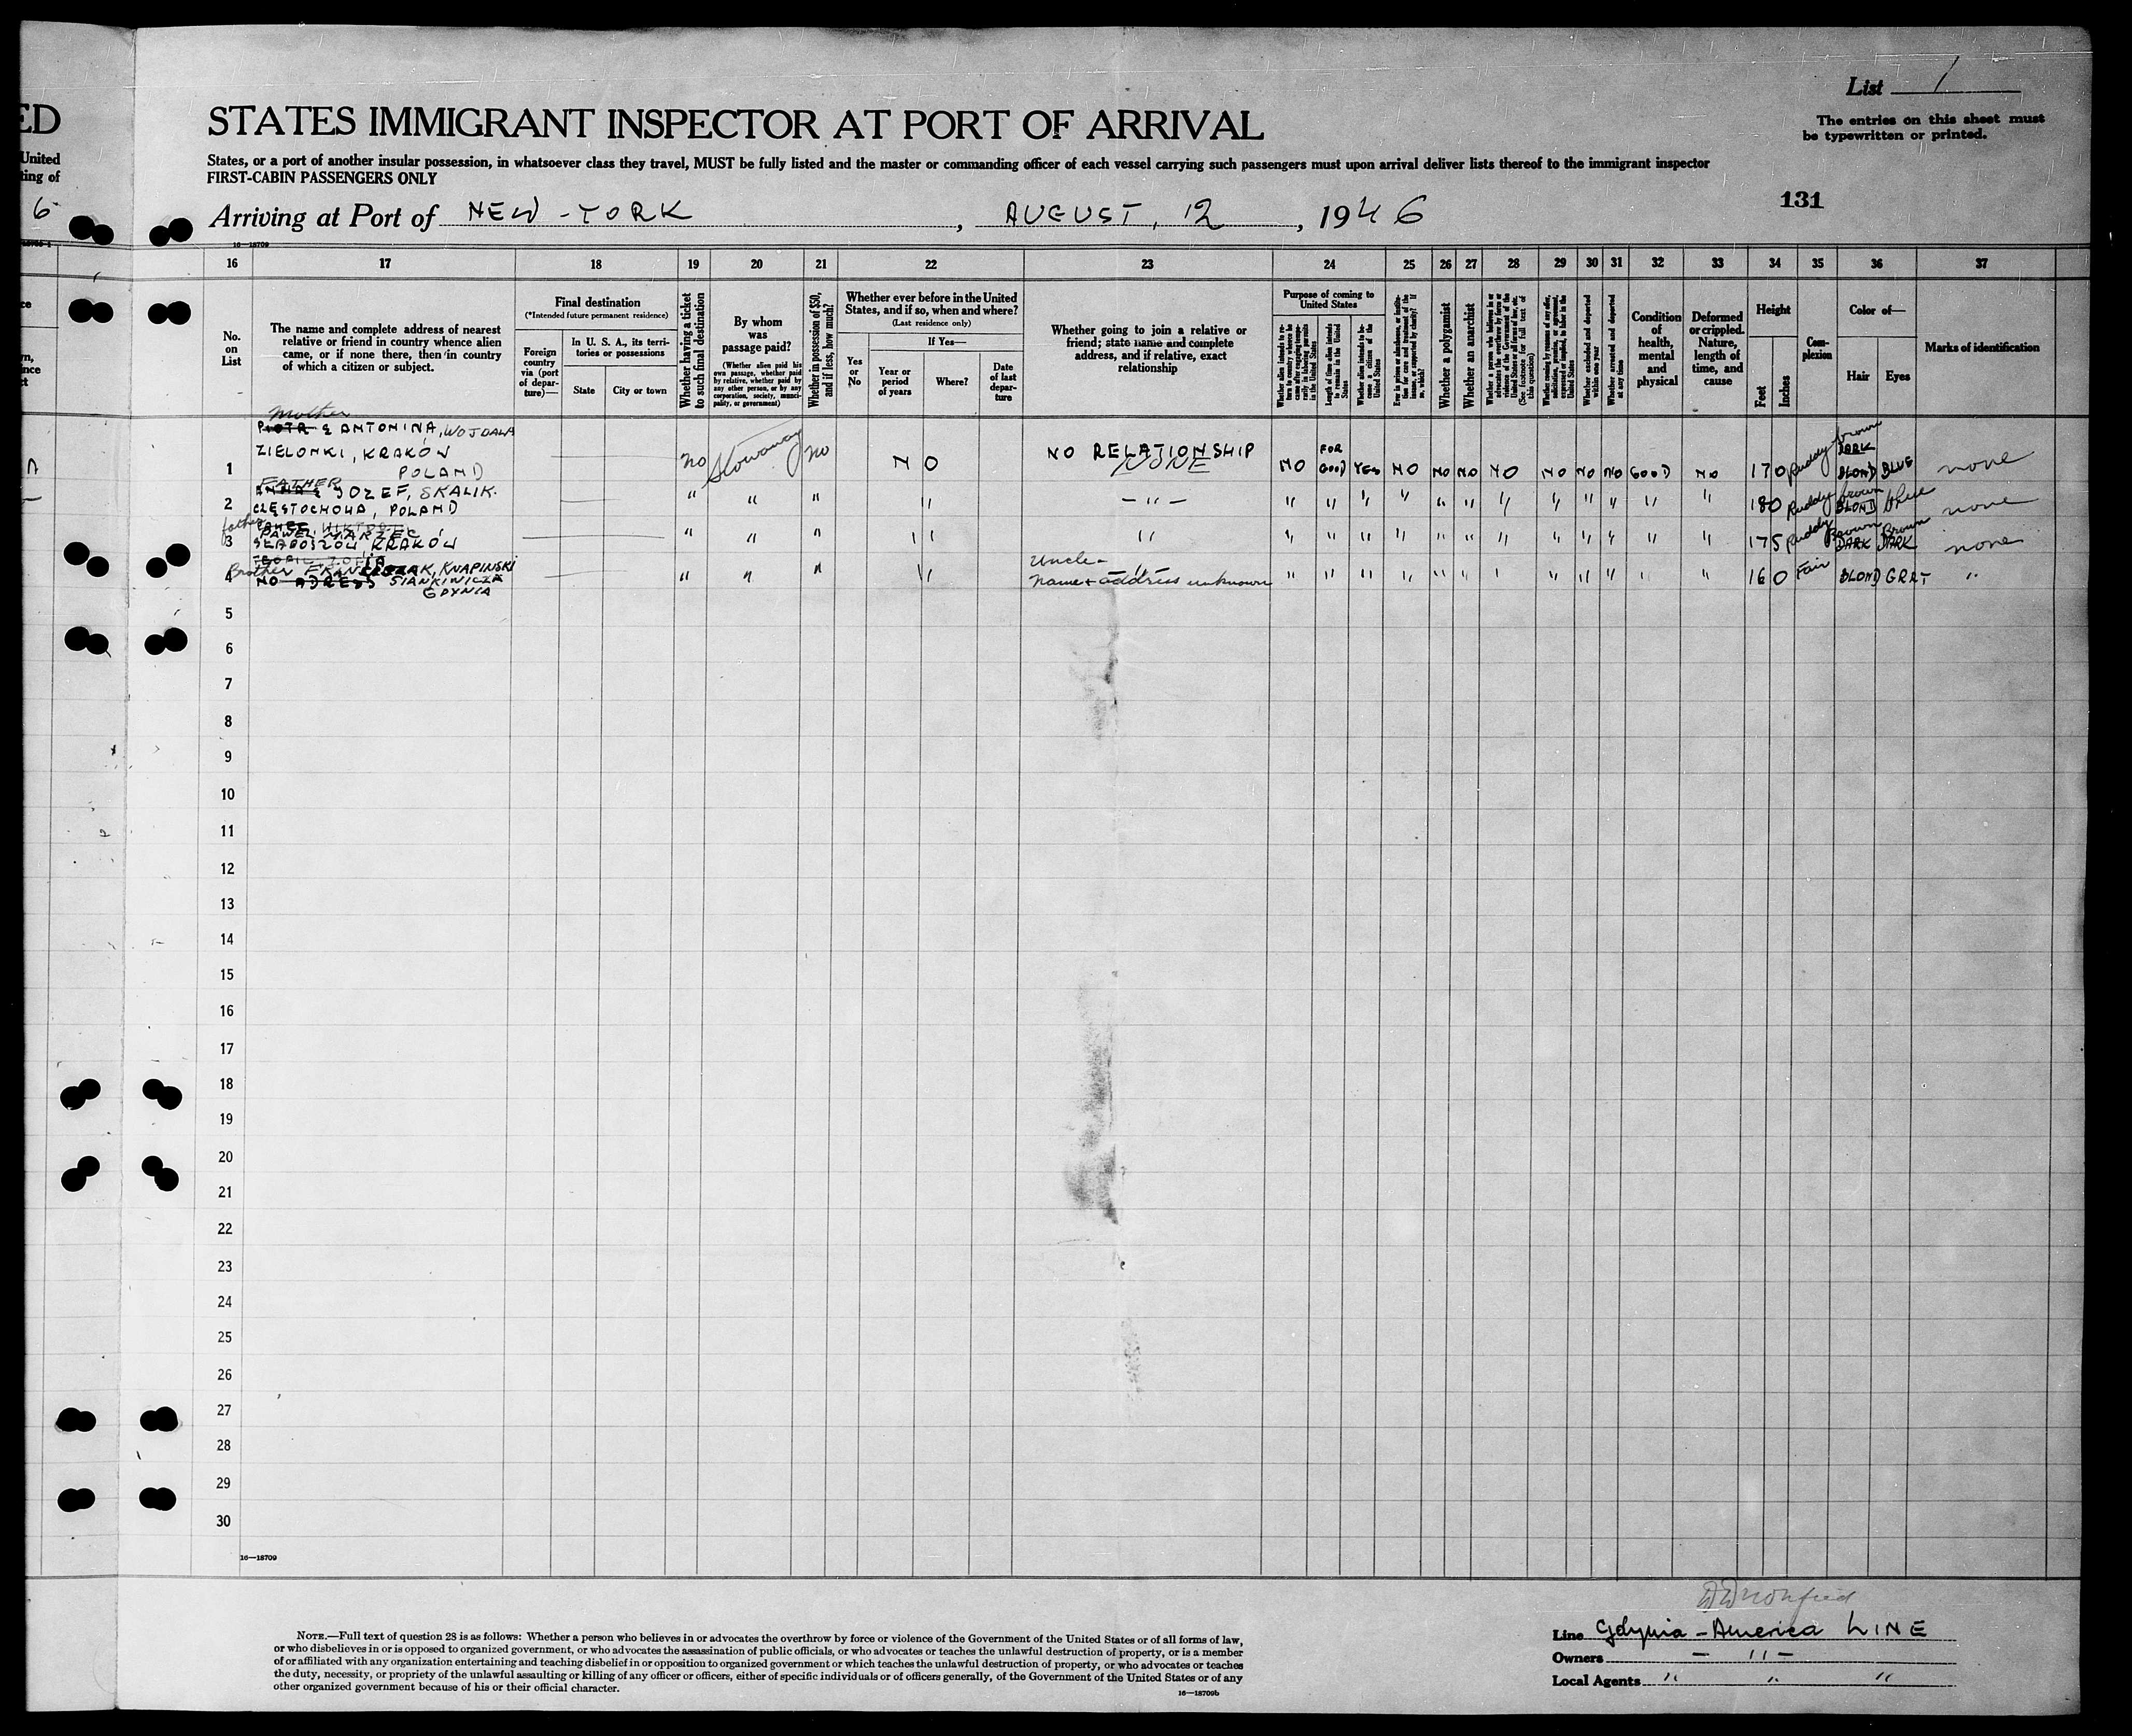 List 1
The entries on this sheet must
be typewritten or printed.
ED
STATES IMMIGRANT INSPECTOR AT PORT OF ARRIVAL
United
States, or a port of another insular possession, in whatsoever class they travel, MUST be fully listed and the master or commanding officer of each vessel carrying such passengers must upon arrival deliver lists thereof to the immigrant inspector
FIRST-CABIN PASSENGERS ONLY
131
6
Arriving at Port of NEW-YORK, AUGUST, 12, 1946
16—18709
16 17 18 19 20 21 22 23 24 25 26 27 28 29 30 31 32 33 34 35 36 37
No.
on
List
The name and complete address of nearest
relative or friend in country whence alien
came, or if none there, then in country
of which a citizen or subject.
Final destination
(*Intended future permanent residence)
Foreign
country
via (port
of depar-
ture)—
In U. S. A., its terri-
tories or possessions
State
City or town
Whether having a ticket
to such final destination
By whom
was
passage paid?
(Whether alien paid his
own passage, whether paid
by relative, whether paid by
any other person, or by any
corporation, society, munici-
pality, or government)
Whether in possession of $50,
and if less, how much?
Whether ever before in the United
States, and if so, when and where?
(Last residence only)
Yes
or
No
If Yes—
Year or
period
of years
Where?
Date
of last
depar-
ture
Whether going to join a relative or
friend; state name and complete
address, and if relative, exact
relationship
Purpose of coming to
United States
Whether alien intends to re-
turn to country whence he
came after engaging tempo-
rarily in laboring pursuits
in the United States
Length of time alien intends
to remain in the United
States
Whether alien intends to be-
come a citizen of the
United States
Whether a polygamist
Whether an anarchist
(See footnote for full text of
this question)
Whether excluded and deported
within one year
Whether arrested and deported
at any time
Condition
of
health,
mental
and
physical
Deformed
or crippled.
Nature,
length of
time, and
cause
Height
Feet
Inches
Com-
plexion
Color of—
Hair
Eyes
Marks of identification
Mother
PIOTR & ANTONINA, WOJDAWA
ZIELONKI, KRAKÓW
POLAND
1 no Stowaway no NO NO RELATIONSHIP
NONE
NO FOR GOOD YES NO NO NO NO NO NO NO GOOD NO 170 Ruddy brown DARK BLOND BLUE none
FATHER
JOZEF, SKALIK.
2 CZĘSTOCHOWA, POLAND " " " " — " — " " " " " " " " " " " " 180 Ruddy brown BLOND blue none
father
PAWEL MARZEC
3 SŁABOSZÓW KRAKÓW " " " " " " " " " " " " " " " " " 175 Ruddy Brown DARK Brown DARK none
TEOFIL, ZOFIA
Brother FRANCISZAK, KNAPINSKI
4 NO ADRESS SIANKIWICZA
GDYNIA
" " " " Uncle—
Name & address unknown " " " " " " " " " " " " 160 Fair BLOND GRAY "
5
6
7
8
9
10
11
12
13
14
15
16
17
18
19
20
21
22
23
24
25
26
27
28
29
30
16—18709
NOTE.—Full text of question 28 is as follows: Whether a person who believes in or advocates the overthrow by force or violence of the Government of the United States or of all forms of law,
or who disbelieves in or is opposed to organized government, or who advocates the assassination of public officials, or who advocates or teaches the unlawful destruction of property, or is a member
of or affiliated with any organization entertaining and teaching disbelief in or opposition to organized government or which teaches the unlawful destruction of property, or who advocates or teaches
the duty, necessity, or propriety of the unlawful assaulting or killing of any officer or officers, either of specific individuals or of officers generally, of the Government of the United States or of any
other organized government because of his or their official character.
16—18709b
Line Gdynia-America LINE
Owners — " —
Local Agents " " "